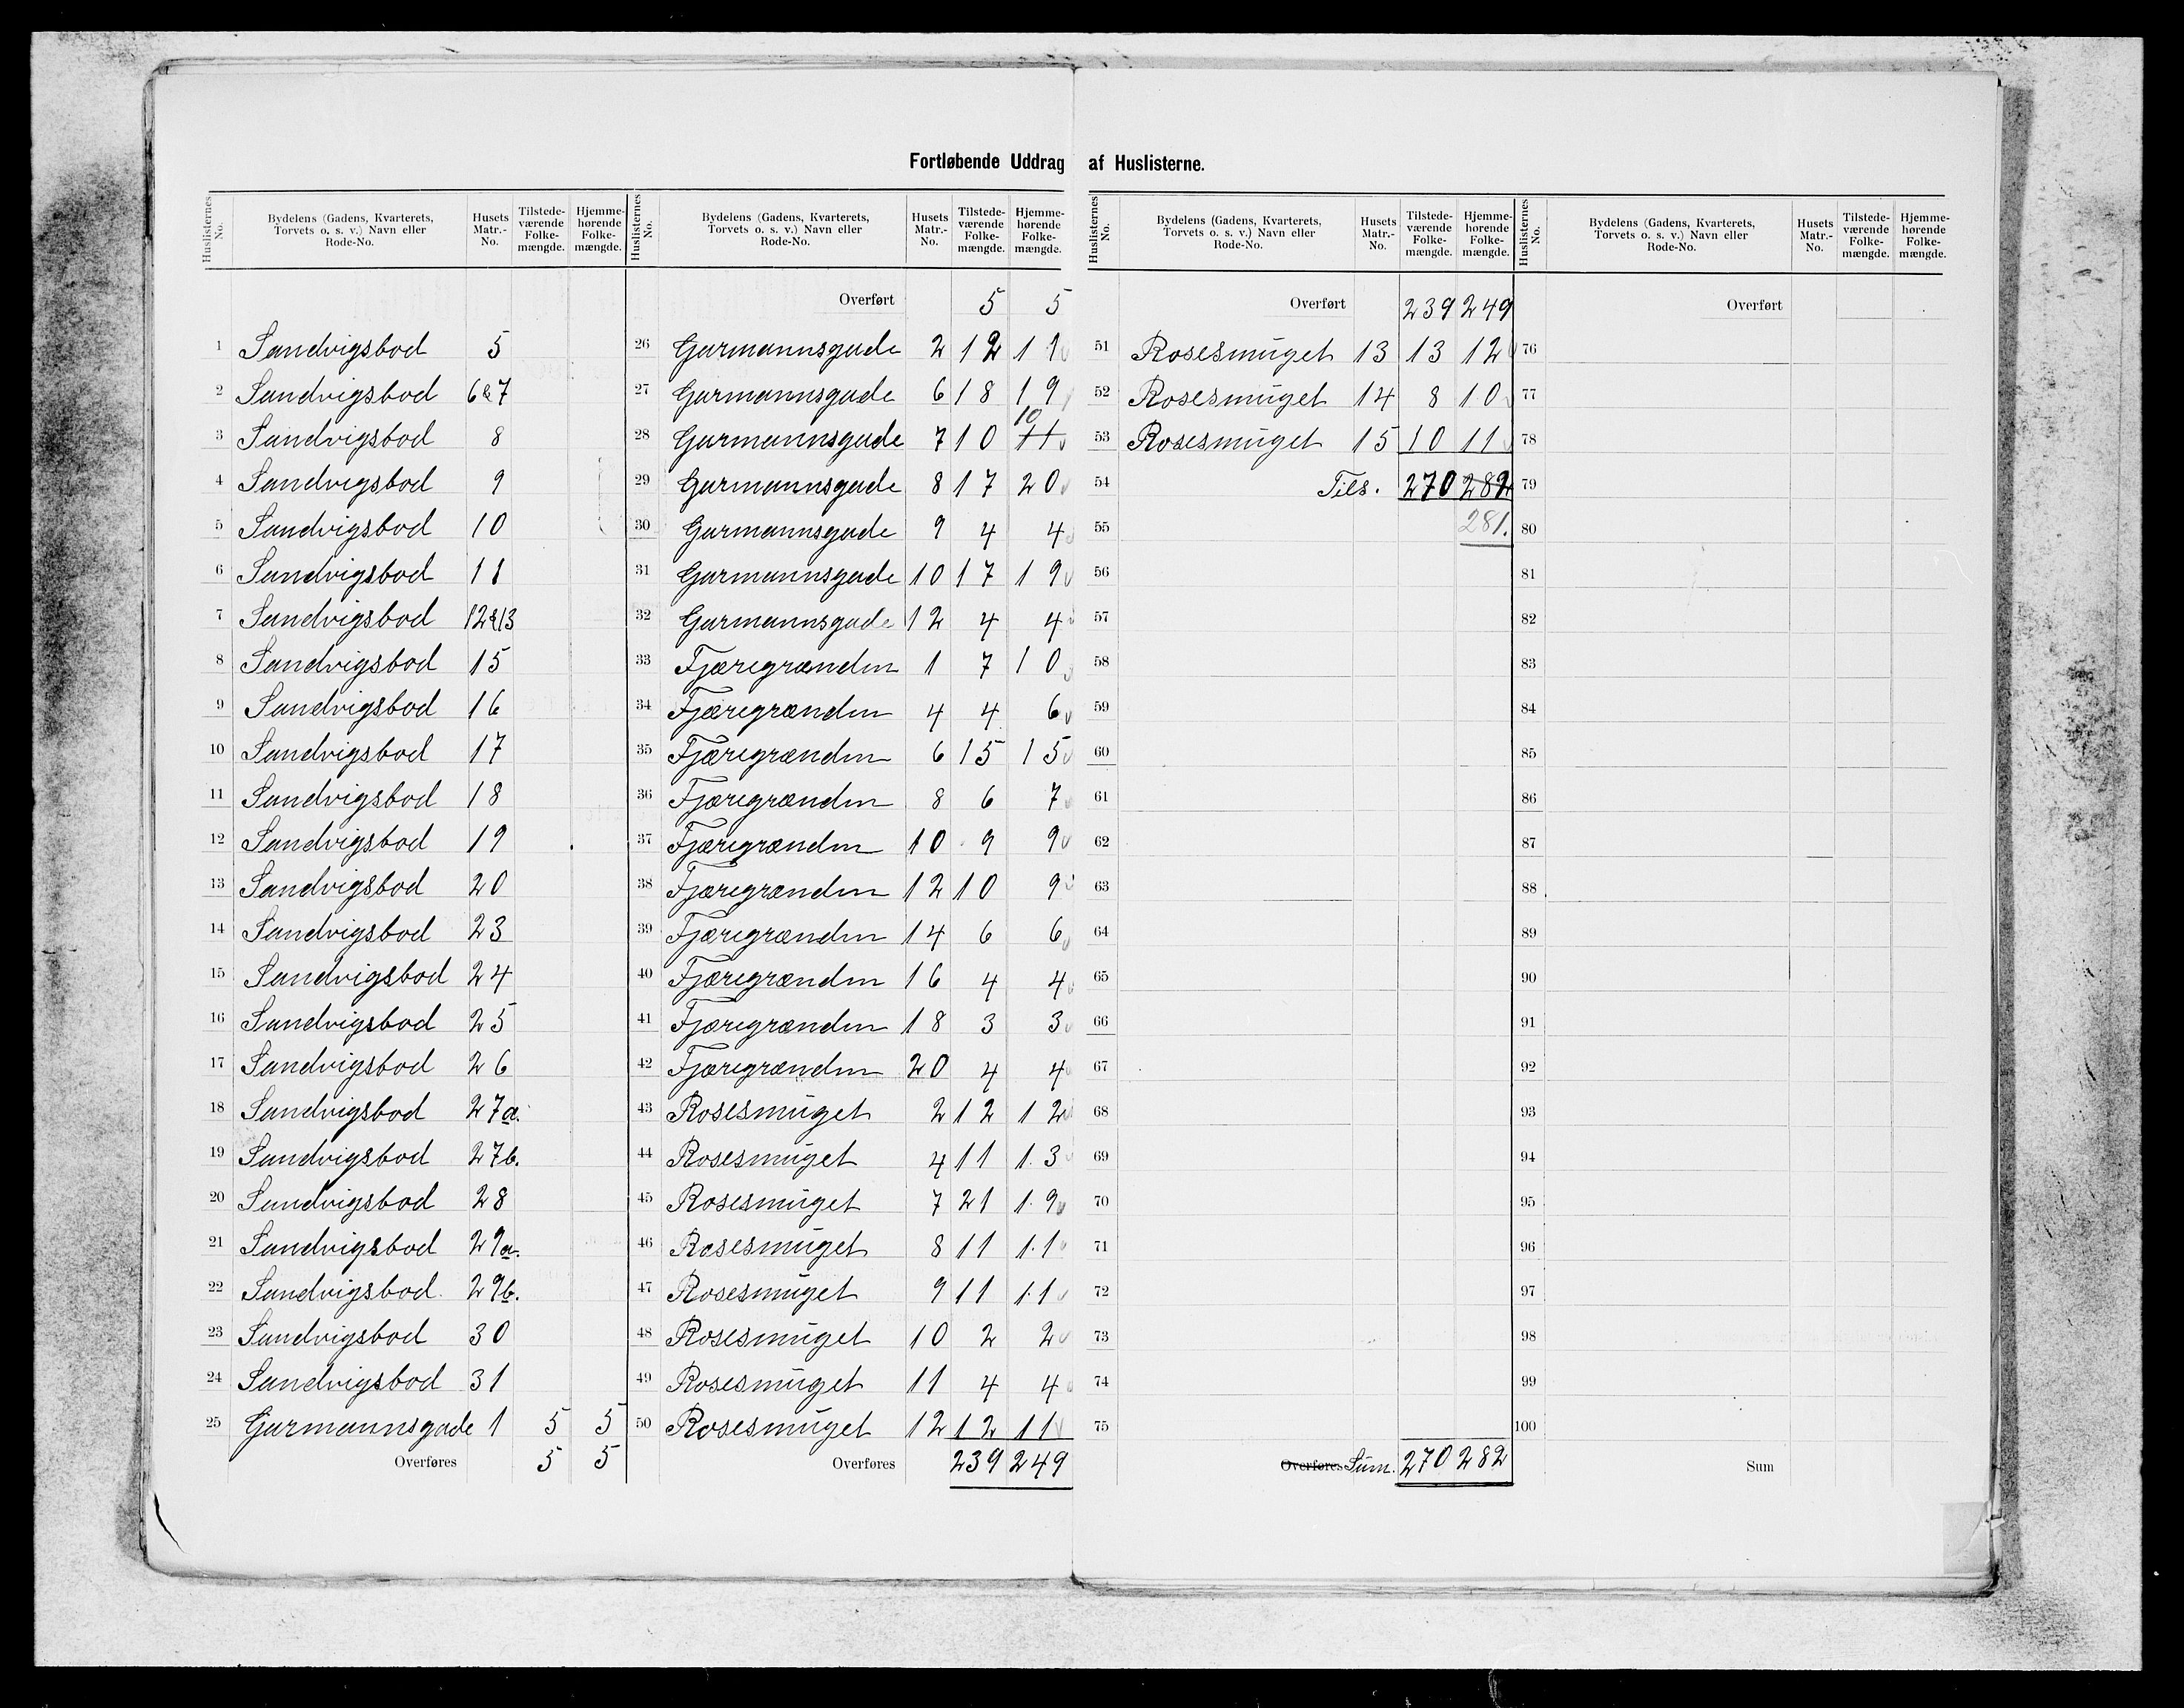 Fortløbende Uddrag af Huslisterne.
Huslisternes No. Bydelens (Gadens, Kvarterets, Torvets o. s. v.) Navn eller Rode-No. Husets Matr.-No. Tilstedeværende Folkemængde. Hjemmehørende Folkemængde.
1 Sandvigsbod 5
2 Sandvigsbod 6&7
3 Sandvigsbod 8
4 Sandvigsbod 9
5 Sandvigsbod 10
6 Sandvigsbod 11
7 Sandvigsbod 12&13
8 Sandvigsbod 15
9 Sandvigsbod 16
10 Sandvigsbod 17
11 Sandvigsbod 18
12 Sandvigsbod 19
13 Sandvigsbod 20
14 Sandvigsbod 23
15 Sandvigsbod 24
16 Sandvigsbod 25
17 Sandvigsbod 26
18 Sandvigsbod 27a.
19 Sandvigsbod 27b.
20 Sandvigsbod 28
21 Sandvigsbod 29a.
22 Sandvigsbod. 29b.
23 Sandvigsbod 30
24 Sandvigsbod 31
25 Garmannsgade 1 5 5
Overføres 5 5
Huslisternes No. Bydelens (Gadens, Kvarterets, Torvets o. s. v.) Navn eller Rode-No. Husets Matr.-No. Tilstedeværende Folkemængde. Hjemmehørende Folkemængde.
Overført 5 5
26 Garmannsgade 2 12 11
27 Garmannsgade 6 18 19
28 Garmannsgade 7 10 11 10
29 Garmannsgade 8 17 20
30 Garmannsgade 9 4 4
31 Garmannsgade 10 17 19
32 Garmannsgade 12 4 4
33 Fjæregrænden 1 7 10
34 Fjæregrænden 4 4 6
35 Fjæregrænden 6 15 15
36 Fjæregrænden 8 6 7
37 Fjæregrænden 10 9 9
38 Fjæregrænden 12 10 9
39 Fjæregrænden 14 6 6
40 Fjæregrænden 16 4 4
41 Fjæregrænden 18 3 3
42 Fjæregrænden 20 4 4
43 Rosesmuget 2 12 12
44 Rosesmuget 4 11 13
45 Rosesmuget 7 21 19
46 Rosesmuget 8 11 11
47 Rosesmuget 9 11 11
48 Rosesmuget 10 2 2
49 Rosesmuget 11 4 4
50 Rosesmuget 12 12 11
Overføres 239 249
Huslisternes No. Bydelens (Gadens, Kvarterets, Torvets o. s. v.) Navn eller Rode-No. Husets Matr.-No. Tilstedeværende Folkemængde. Hjemmehørende Folkemængde.
Overført 239 249
51 Rosesmuget 13 13 12
52 Rosesmuget 14 8 10
53 Rosesmuget 15 10 11
54 Tils. 270 282
55 281.
56
57
58
59
60
61
62
63
64
65
66
67
68
69
70
71
72
73
74
75
Overføres Sum. 270 282
Huslisternes No. Bydelens (Gadens, Kvarterets, Torvets o. s. v.) Navn eller Rode-No. Husets Matr.-No. Tilstedeværende Folkemængde. Hjemmehørende Folkemængde.
Overført
76
77
78
79
80
81
82
83
84
85
86
87
88
89
90
91
92
93
94
95
96
97
98
99
100
Sum